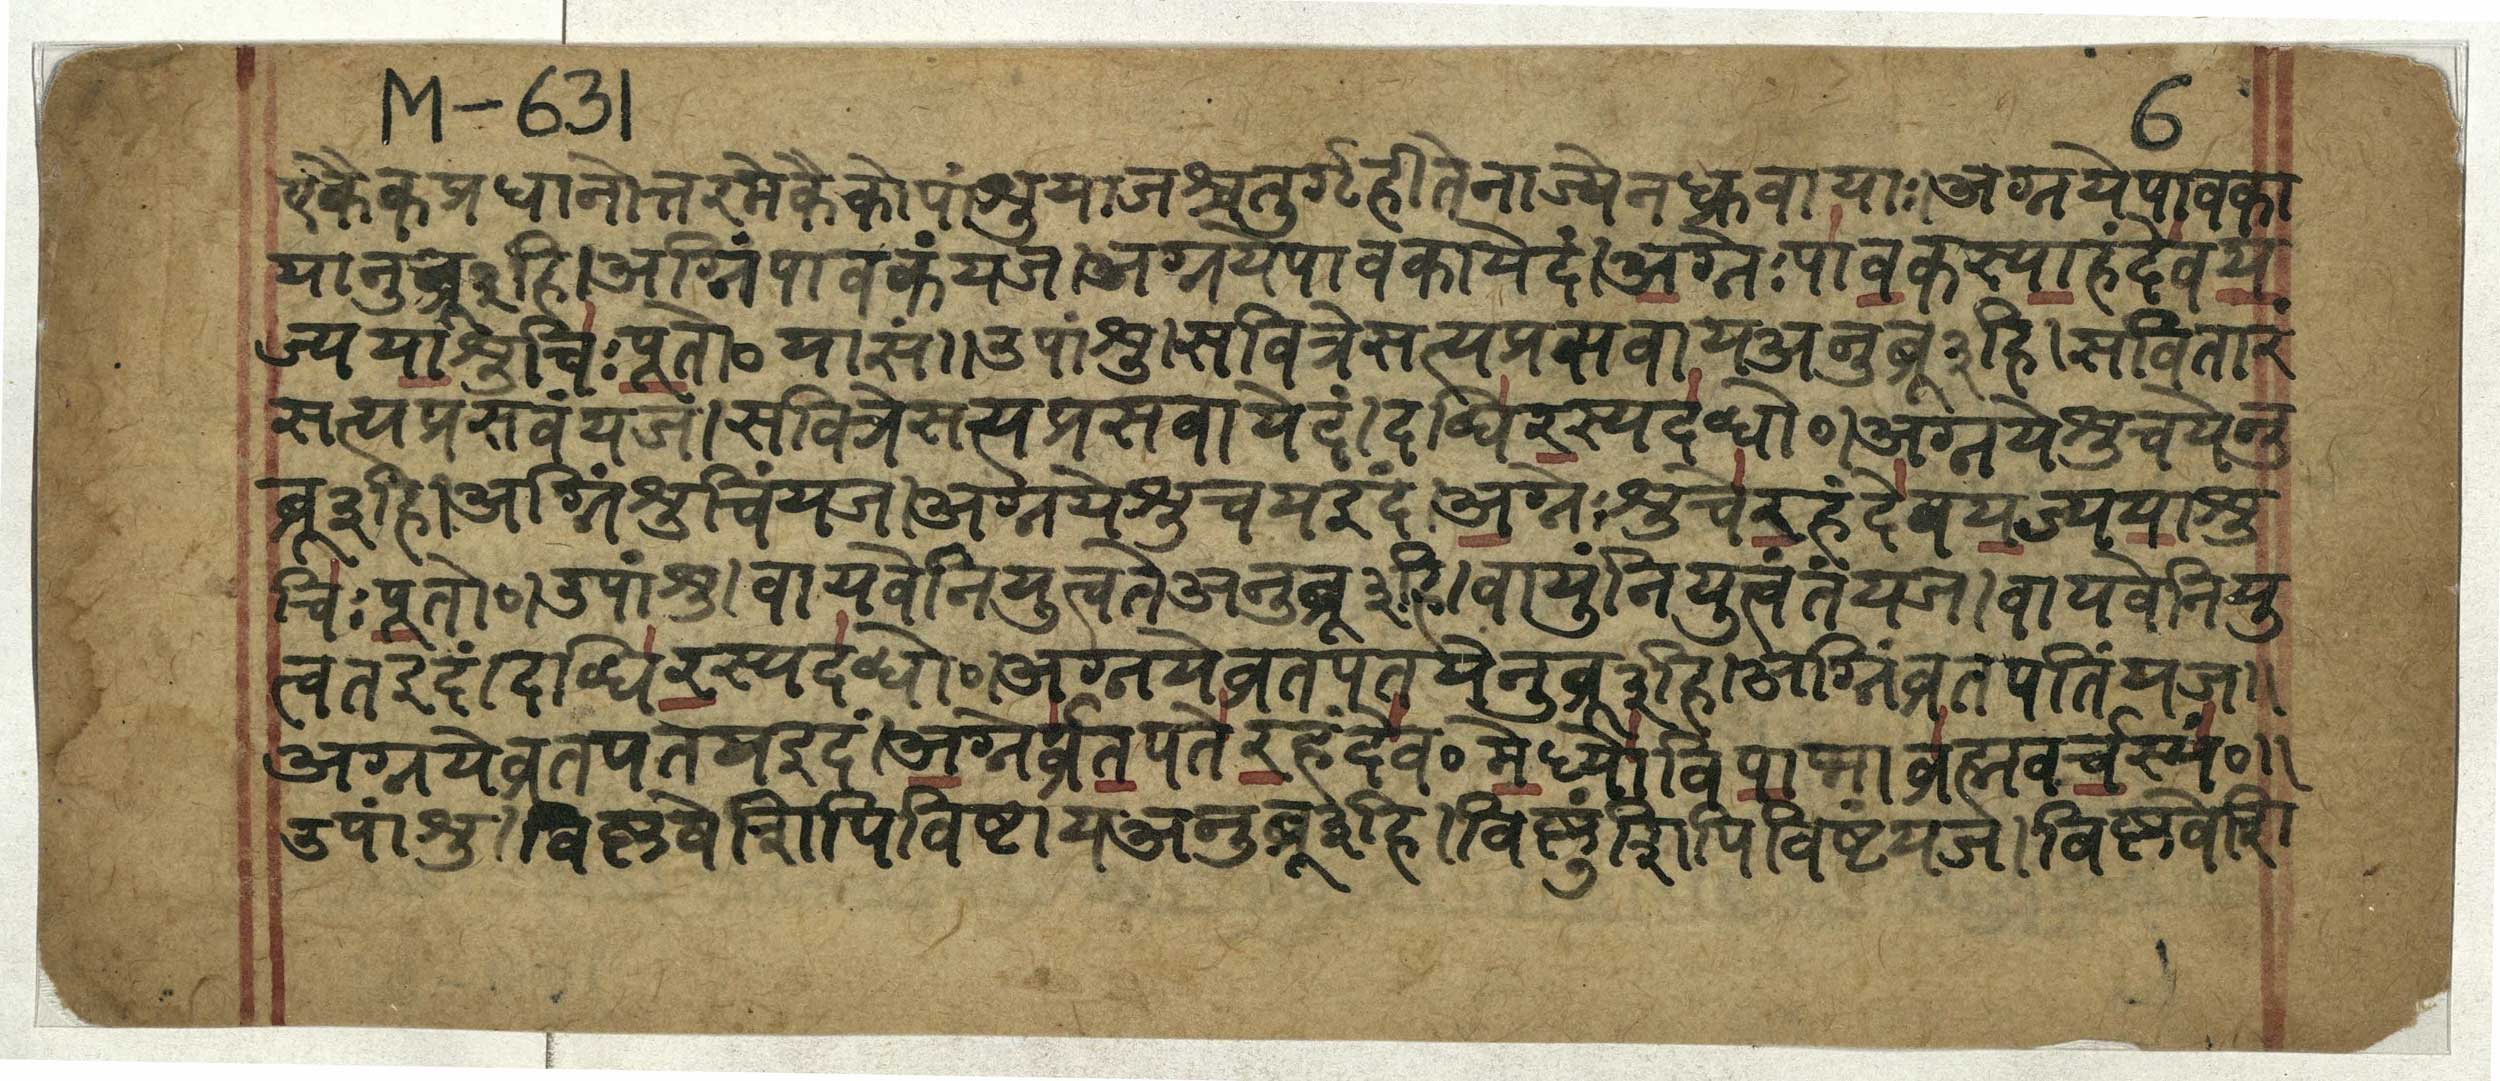 M-631
6
एकैकप्रधानोत्तरमेकैकोपांश्रुयाजश्चतुर्गृहीतेनाज्येनध्रुवायाः।अग्नयेपावका
यानुब्रू३हि।अग्निंपावकंयज।अग्नयेपावकायेदं।अग्नेःपावकस्याहंदेवय
ज्ययाश्रुचिःपूतो०यासं॥उपांश्रु।सवित्रेसत्यप्रसवायअनुब्रू३हि।सवितारं
सत्यप्रसवंयज।सवित्रेसत्यप्रसवायेदं।दब्धिरस्यदब्धो०।अग्नयेश्रुचयेनु
ब्रू३हि।अग्निंश्रुचिंयज।अग्नयेश्रुचयइदं।अग्नेःश्रुचेरहंदेवयज्ययाश्रु
चिःपूतो०।उपांश्रु।वायवेनियुत्वतेअनुब्रू३हि।वायुंनियुत्वंतंयज।वायवेनियु
त्वतइदं।दब्धिरस्यदब्धो०।अग्नयेव्रतपतयेनुब्रू३हि।अग्निंव्रतपतिंयज॥
अग्नयेव्रतपतयइदं।अग्नेर्व्रतपतेरहंदेव०मेध्योविपाप्माब्रह्मवर्चस्यं०॥
उपांश्रु।विष्णवेशिपिविष्टायअनुब्रू३हि।विष्णुंशिपिविष्टंयज।विष्णवेशि